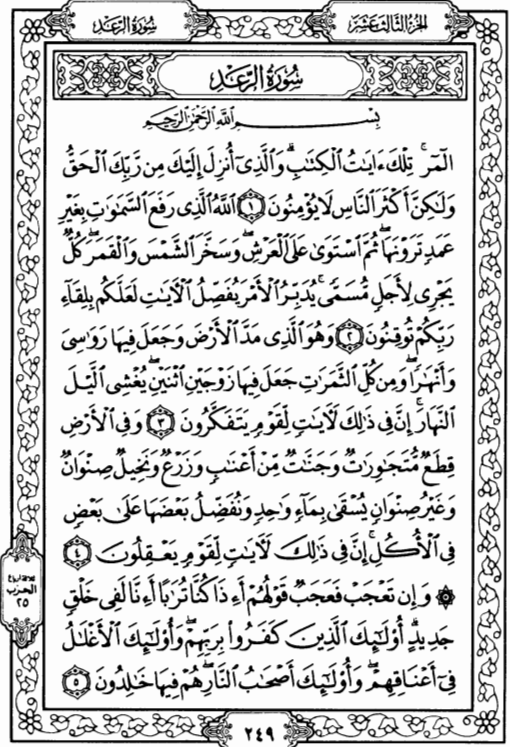 الجزء الثالث عشر
سورة الرعد
سُورَةُ الرَّعْدِ
بِسْمِ اللَّهِ الرَّحْمَٰنِ الرَّحِيمِ
الٓمٓرۚ تِلۡكَ ءَايَٰتُ ٱلۡكِتَٰبِۗ وَٱلَّذِيٓ أُنزِلَ إِلَيۡكَ مِن رَّبِّكَ ٱلۡحَقُّ
وَلَٰكِنَّ أَكۡثَرَ ٱلنَّاسِ لَا يُؤۡمِنُونَ ١ ٱللَّهُ ٱلَّذِي رَفَعَ ٱلسَّمَٰوَٰتِ بِغَيۡرِ
عَمَدٖ تَرَوۡنَهَاۖ ثُمَّ ٱسۡتَوَىٰ عَلَى ٱلۡعَرۡشِۖ وَسَخَّرَ ٱلشَّمۡسَ وَٱلۡقَمَرَۖ كُلّٞ
يَجۡرِي لِأَجَلٖ مُّسَمّٗىۚ يُدَبِّرُ ٱلۡأَمۡرَ يُفَصِّلُ ٱلۡأٓيَٰتِ لَعَلَّكُم بِلِقَآءِ
رَبِّكُمۡ تُوقِنُونَ ٢ وَهُوَ ٱلَّذِي مَدَّ ٱلۡأَرۡضَ وَجَعَلَ فِيهَا رَوَٰسِيَ
وَأَنۡهَٰرٗاۖ وَمِن كُلِّ ٱلثَّمَرَٰتِ جَعَلَ فِيهَا زَوۡجَيۡنِ ٱثۡنَيۡنِۖ يُغۡشِي ٱلَّيۡلَ
ٱلنَّهَارَۚ إِنَّ فِي ذَٰلِكَ لَأٓيَٰتٖ لِّقَوۡمٖ يَتَفَكَّرُونَ ٣ وَفِي ٱلۡأَرۡضِ
قِطَعٞ مُّتَجَٰوِرَٰتٞ وَجَنَّٰتٞ مِّنۡ أَعۡنَٰبٖ وَزَرۡعٞ وَنَخِيلٞ صِنۡوَانٞ
وَغَيۡرُ صِنۡوَانٖ يُسۡقَىٰ بِمَآءٖ وَٰحِدٖ وَنُفَضِّلُ بَعۡضَهَا عَلَىٰ بَعۡضٖ
فِي ٱلۡأُكُلِۚ إِنَّ فِي ذَٰلِكَ لَأٓيَٰتٖ لِّقَوۡمٖ يَعۡقِلُونَ ٤
۞ وَإِن تَعۡجَبۡ فَعَجَبٞ قَوۡلُهُمۡ أَءِذَا كُنَّا تُرَٰبًا أَءِنَّا لَفِي خَلۡقٖ
جَدِيدٍۗ أُوْلَٰٓئِكَ ٱلَّذِينَ كَفَرُواْ بِرَبِّهِمۡۖ وَأُوْلَٰٓئِكَ ٱلۡأَغۡلَٰلُ
فِيٓ أَعۡنَاقِهِمۡۖ وَأُوْلَٰٓئِكَ أَصۡحَٰبُ ٱلنَّارِۖ هُمۡ فِيهَا خَٰلِدُونَ ٥
ثلاثة أرباع
الحزب
٢٥
٢٤٩